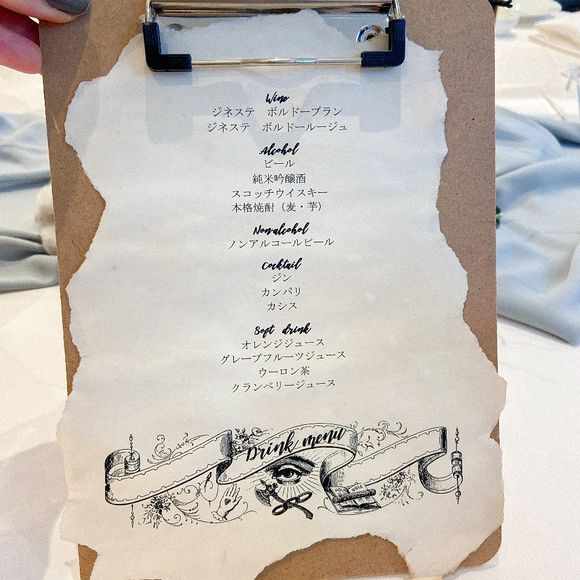 Wine
ジネステ　ボルドーブラン
ジネステ　ボルドールージュ
Alcohol
ビール
純米吟醸酒
スコッチウイスキー
本格焼酎（麦・芋）
Nonalcohol
ノンアルコールビール
Cocktail
ジン
カンパリ
カシス
Soft drink
オレンジジュース
グレープフルーツジュース
ウーロン茶
クランベリージュース
Drink menu